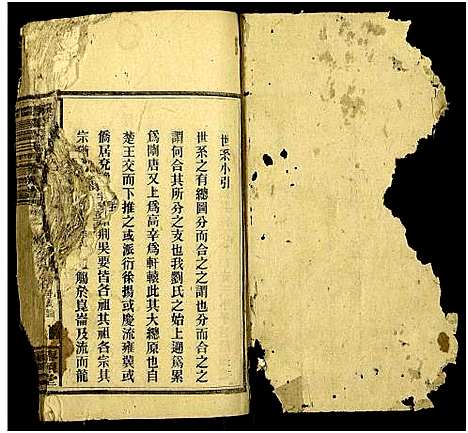 世系小引
世系之有總圖分而合之之謂也分而合之之
謂何合其所分之支也我劉氏之始上遡爲累
爲陶唐又上爲高辛爲軒轅此其大總原也自
楚王交而下推之或派衍徐揚或慶流雍冀或
僑居兗 荆果要皆各祖其祖各宗其
宗 觸於崑崙及流而龍